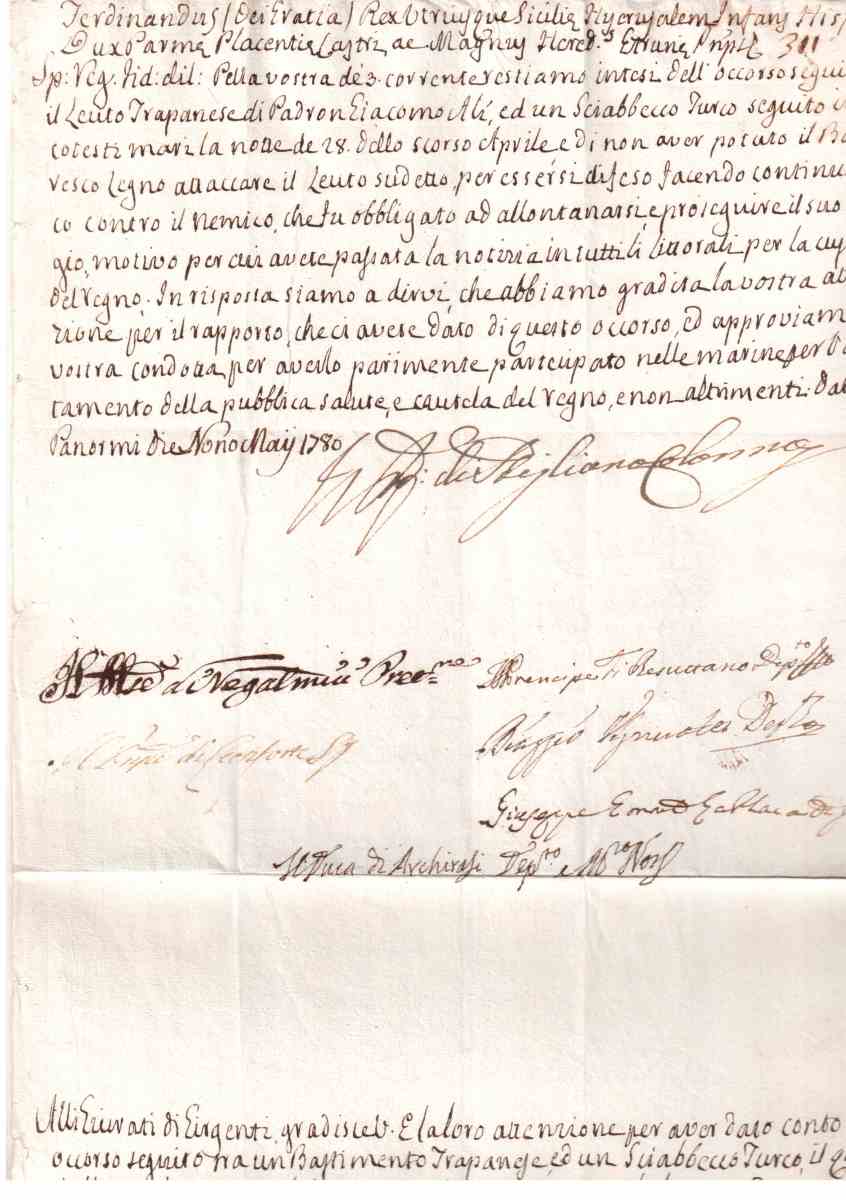 Ferdinandus (Dei Gratia) Rex Utriusque Sicilie Hyerusalem Infans His
Dux Parme Placentie Castri ac Magnus Hered.s Etrurie 311
Sp: Reg. fid: dil: Pella vostra de 3. corrente restiamo intesi dell'occorso segui
il Leuto Trapanese di Padron Giacomo Alì, ed un Sciabbecco Turco seguito i
cotesti mari la notte de 28. dello scorso Aprile e di non aver potuto il Ba
resco Legno attaccare il Leuto sudetto, per essersi difeso facendo continu
co contro il nemico, che fu obbligato ad allontanarsi, e proseguire il suo
gio, motivo per cui avete passata la notizia in tutti li littorali per la cu
del regno. In risposta siamo a dirvi, che abbiamo gradita la vostra at
zione per il rapporto, che ci avete dato di questo occorso, ed approviam
vostra condotta per averlo parimente partecipato nelle marine per
tamento della pubblica salute, e cautela del regno, e non altrimenti. Dat
Panormi die Nono Maij 1780
di Stigliano Colonna
Prencipe di Resuttano Dep.to
di Scordia
Biaggio Dep.to
Giuseppe
Il Duca di Archirafi Dep.to e
Alli Giurati di Girgenti, gradisce V. E la loro attenzione per aver dato conto
occorso seguito tra un Bastimento Trapanese, ed un Sciabbecco Turco, il q